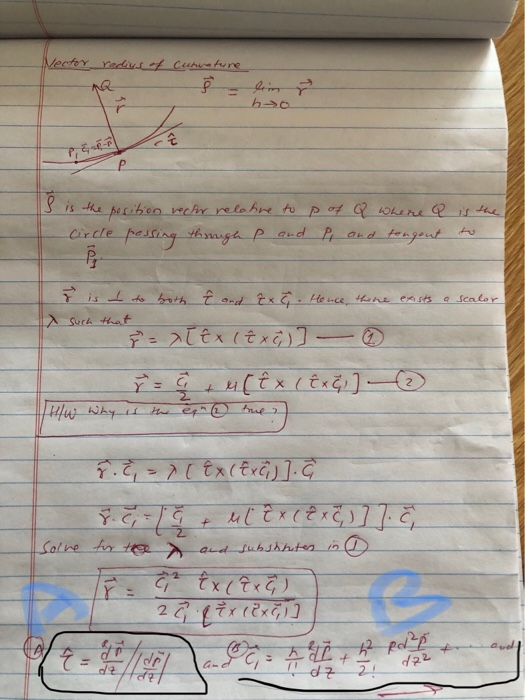 Vector radius of Curvature
Q
r⃗
ρ⃗ = lim r⃗
h→0
P₁ c⃗₁ = p⃗₁ - p⃗
τ̂
P
ρ⃗ is the position vector relative to P of Q where Q is the
circle passing through P and P₁ and tangent to
P⃗₁
r⃗ is ⊥ to both τ̂ and τ̂ × c⃗₁. Hence, there exists a scalar
λ such that
r⃗ = λ[τ̂ × (τ̂ × c⃗₁)] — ①
r⃗ = c⃗₁/2 + μ[τ̂ × (τ̂ × c⃗₁)] — ②
H/W why is the eqⁿ ② true?
r⃗ · c⃗₁ = λ[τ̂ × (τ̂ × c⃗₁)] · c⃗₁
r⃗ · c⃗₁ = [c⃗₁/2 + μ[τ̂ × (τ̂ × c⃗₁)]] · c⃗₁
Solve for λ and substitutes in ①
r⃗ = c⃗₁² τ̂ × (τ̂ × c⃗₁) / 2 c⃗₁ · [τ̂ × (τ̂ × c⃗₁)]
A B
Ⓐ τ̂ = dp⃗/dz / |dp⃗/dz| and Ⓑ c⃗₁ = h/1! dp⃗/dz + h²/2! d²p⃗/dz² + ... and